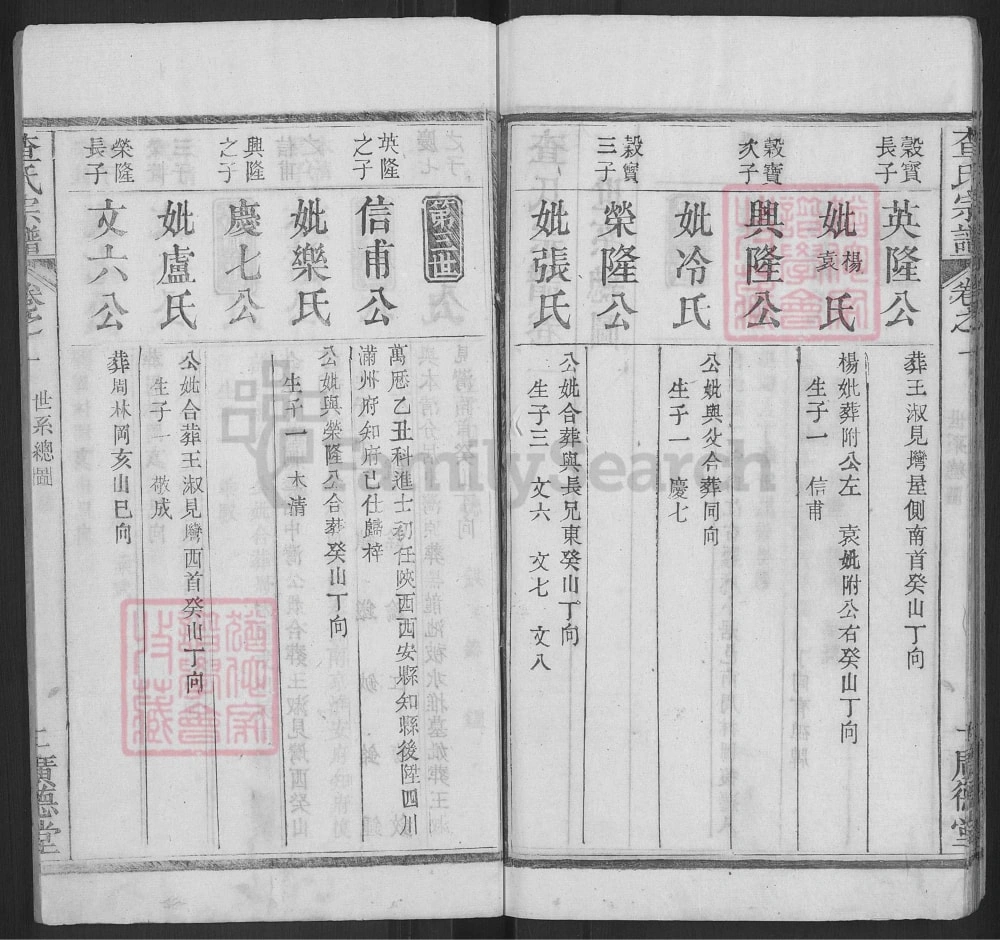 查氏宗譜
卷之一
廣德堂
穀寶長子
英隆公
葬王淑見塆屋側南首癸山丁向
妣楊袁氏
楊妣葬附公左 袁妣附公右癸山丁向
生子一 信甫
穀寶次子
興隆公
妣冷氏
公妣與父合葬同向
生子一 慶七
穀寶三子
榮隆公
妣張氏
公妣合葬與長兄東癸山丁向
生子三 文六 文七 文八
第三世
英隆之子
信甫公
萬厯乙丑科進士初任陝西西安縣知縣後陞四川
滿州府知府已仕歸梓
妣樂氏
公妣與榮隆公合葬癸山丁向
生子一 木清
興隆之子
慶七公
妣盧氏
公妣合葬王淑見塆西首癸山丁向
生子一 敬成
榮隆長子
文六公
葬周林岡亥山巳向
查氏宗譜
卷之一
世系總圖
二
廣德堂
FamilySearch